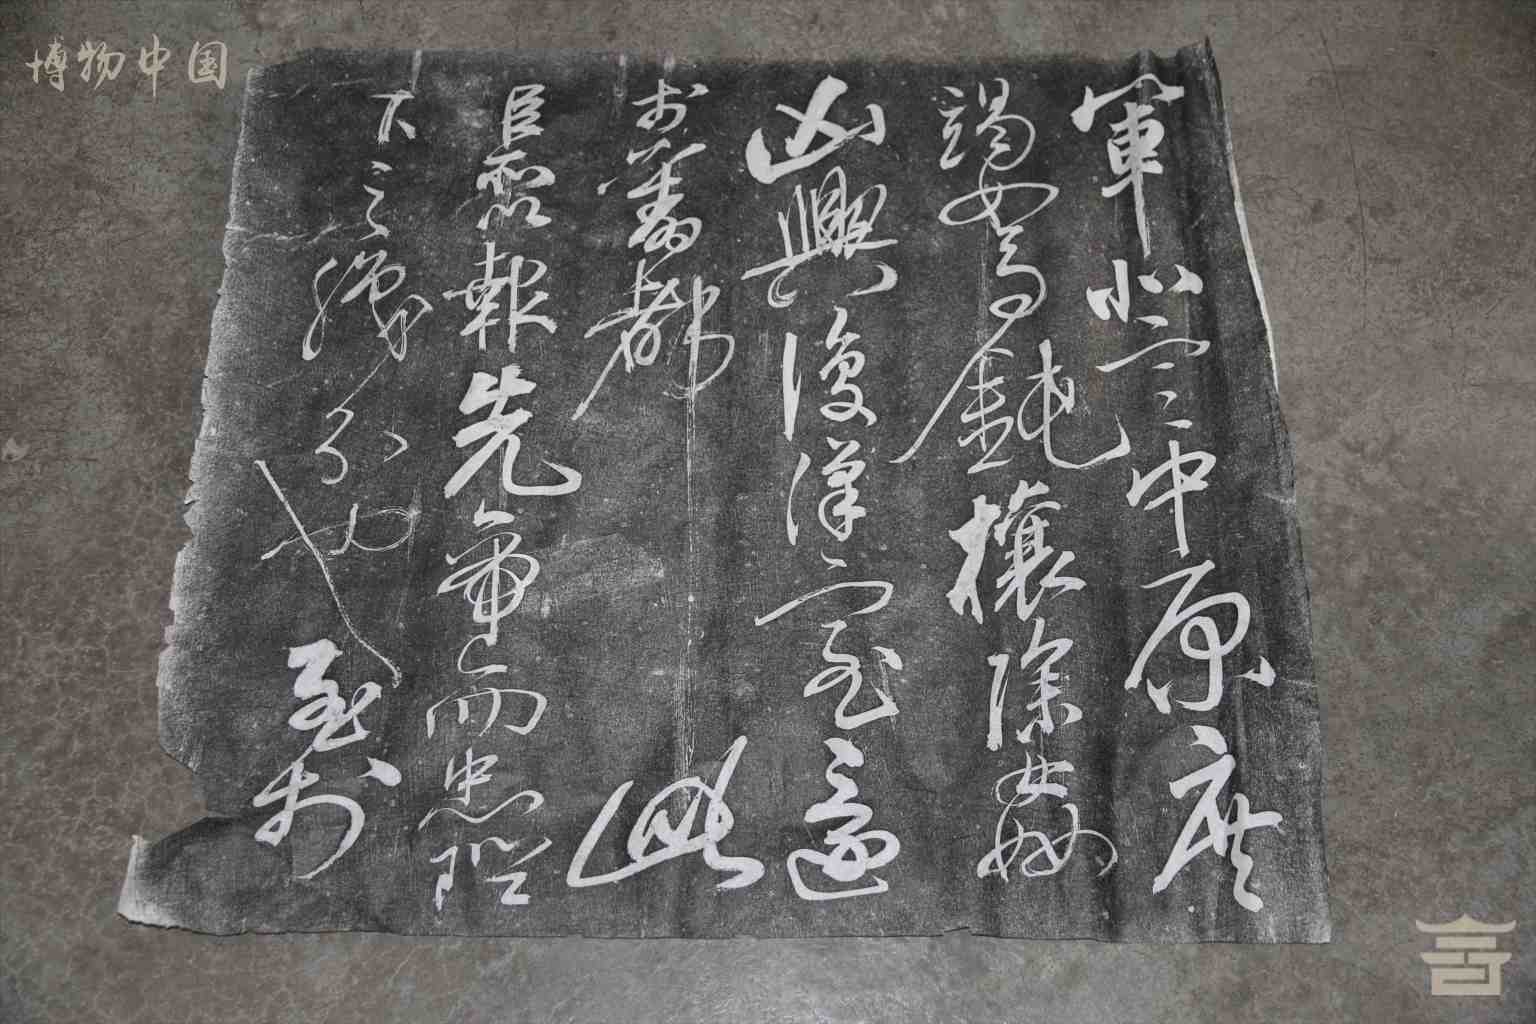 博物中国
軍北定中原庶
竭駑鈍攘除姦
凶興復漢室還
於舊都此
臣所以報先帝而忠陛
下之職分也至於